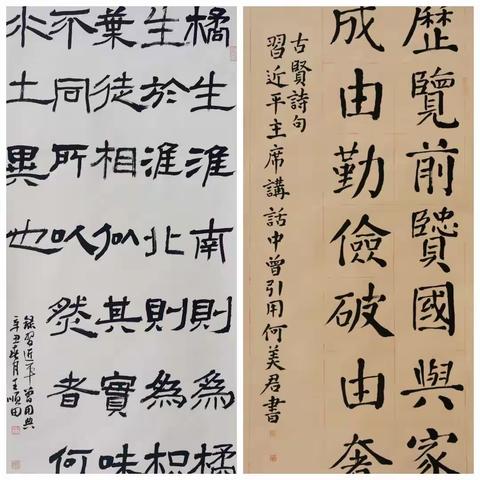 橘生淮南則為橘
生於淮北則為枳
葉徒相似其實味
不同所以然者何
水土異也
錄習近平曾用典
辛丑春月王順田
歷覽前賢國與家
成由勤儉破由奢
古賢詩句
習近平主席講話中曾引用何美君書